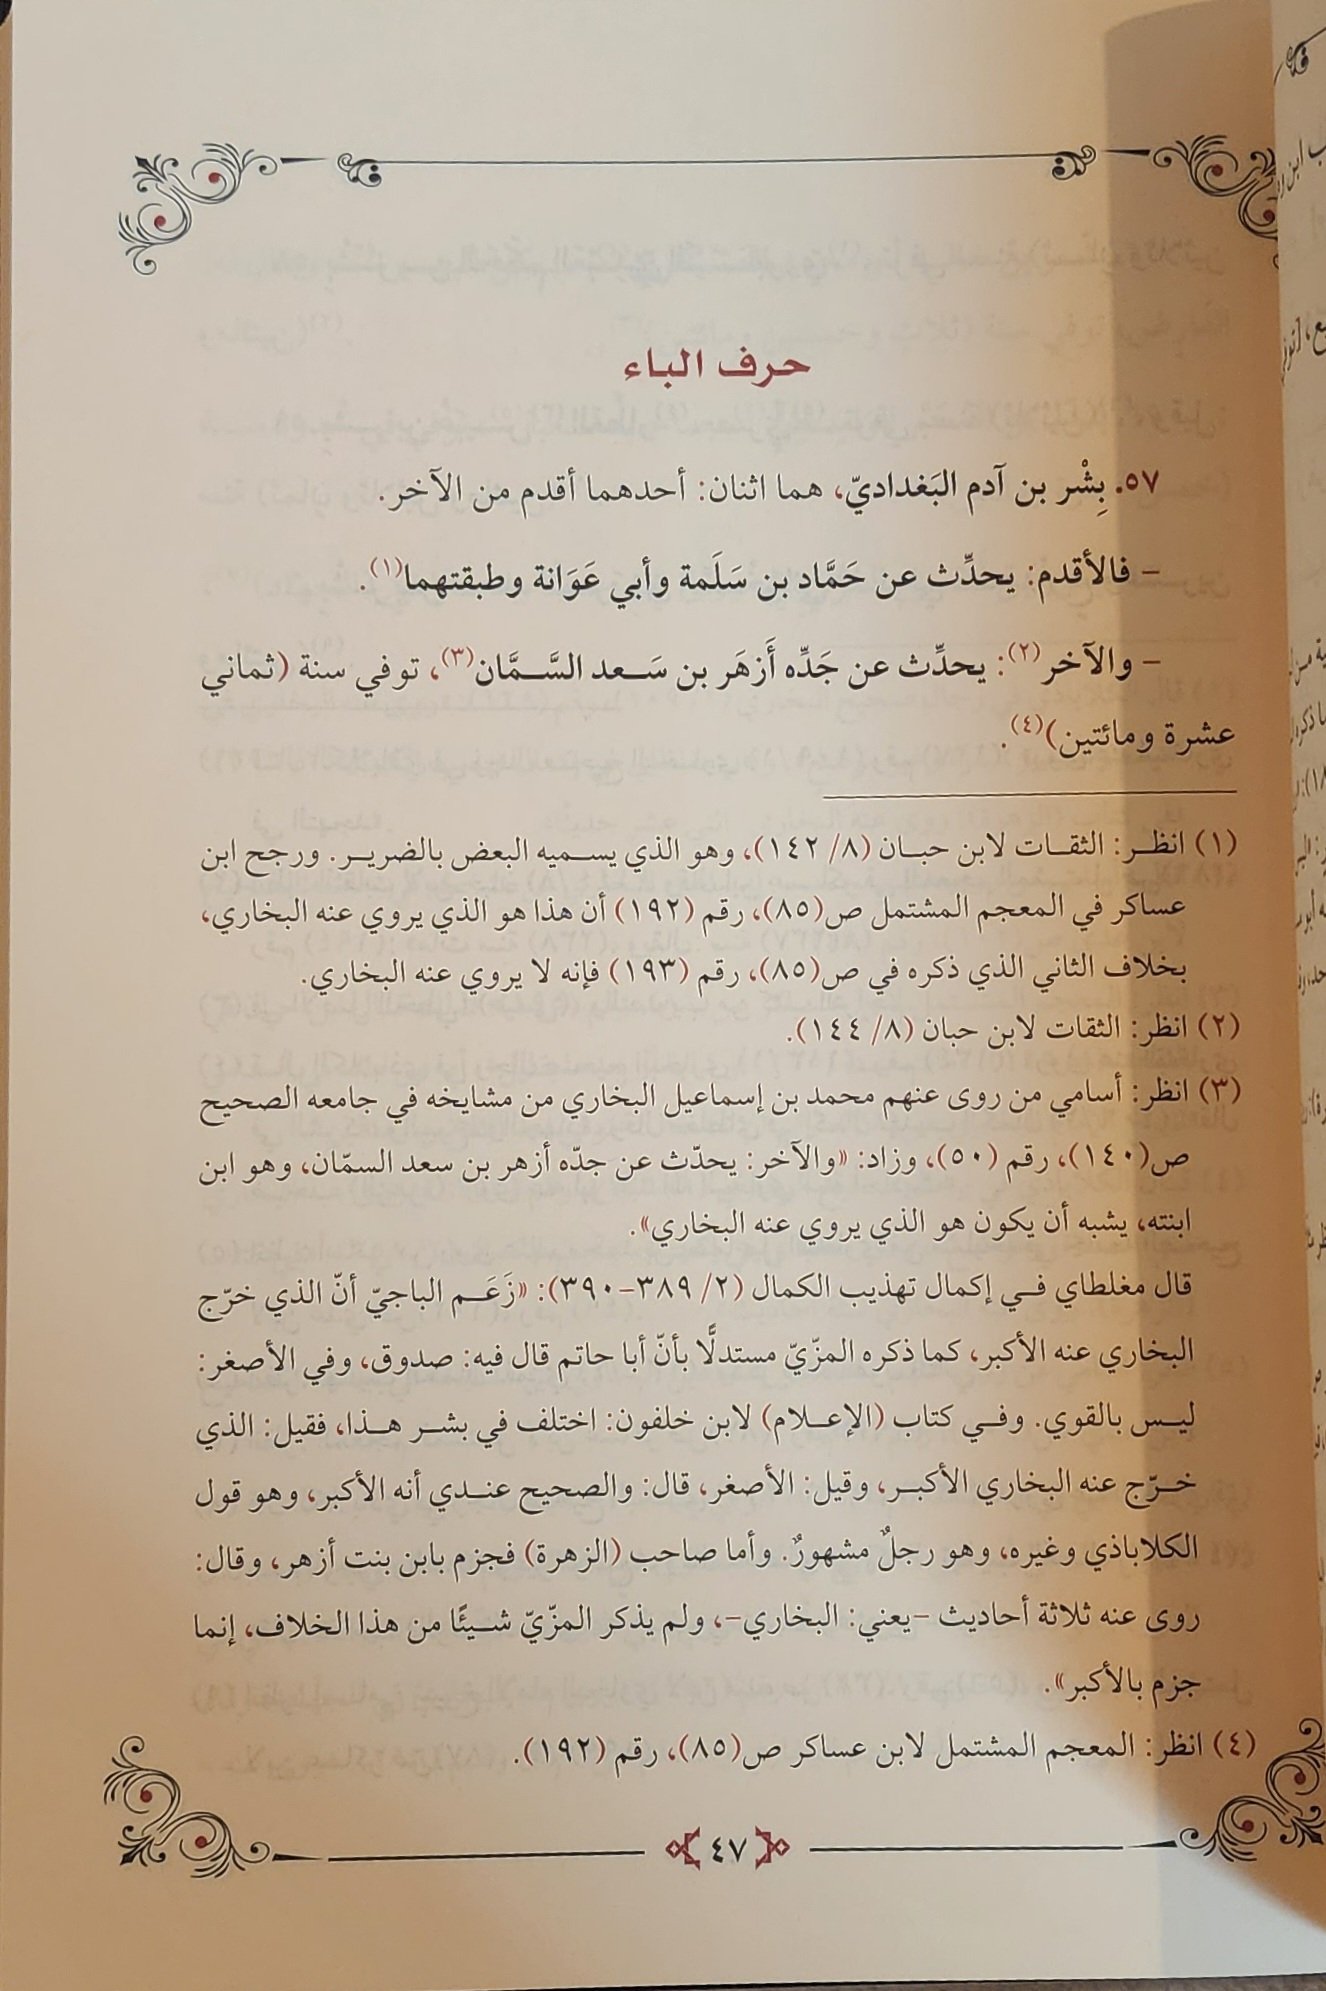 حرف الباء
٥٧. بِشْر بن آدم البَغداديّ، هما اثنان: أحدهما أقدم من الآخر.
– فالأقدم: يحدِّث عن حَمَّاد بن سَلَمة وأبي عَوَانة وطبقتهما(١).
– والآخر(٢): يحدِّث عن جَدِّه أَزهَر بن سَعد السَّمَّان(٣)، توفي سنة (ثماني
عشرة ومائتين)(٤).
(١) انظر: الثقات لابن حبان (٨/ ١٤٢)، وهو الذي يسميه البعض بالضرير. ورجح ابن
عساكر في المعجم المشتمل ص(٨٥)، رقم (١٩٢) أن هذا هو الذي يروي عنه البخاري،
بخلاف الثاني الذي ذكره في ص(٨٥)، رقم (١٩٣) فإنه لا يروي عنه البخاري.
(٢) انظر: الثقات لابن حبان (٨/ ١٤٤).
(٣) انظر: أسامي من روى عنهم محمد بن إسماعيل البخاري من مشايخه في جامعه الصحيح
ص(١٤٠)، رقم (٥٠)، وزاد: «والآخر: يحدّث عن جدّه أزهر بن سعد السمّان، وهو ابن
ابنته، يشبه أن يكون هو الذي يروي عنه البخاري».
قال مغلطاي في إكمال تهذيب الكمال (٢/ ٣٨٩-٣٩٠): «زَعَم الباجيّ أنّ الذي خرّج
البخاري عنه الأكبر، كما ذكره المزّيّ مستدلًّا بأنّ أبا حاتم قال فيه: صدوق، وفي الأصغر:
ليس بالقوي. وفي كتاب (الإعلام) لابن خلفون: اختلف في بشر هذا، فقيل: الذي
خرّج عنه البخاري الأكبر، وقيل: الأصغر، قال: والصحيح عندي أنه الأكبر، وهو قول
الكلاباذي وغيره، وهو رجلٌ مشهورٌ. وأما صاحب (الزهرة) فجزم بابن بنت أزهر، وقال:
روى عنه ثلاثة أحاديث –يعني: البخاري–، ولم يذكر المزّيّ شيئًا من هذا الخلاف، إنما
جزم بالأكبر».
(٤) انظر: المعجم المشتمل لابن عساكر ص(٨٥)، رقم (١٩٢).
٤٧